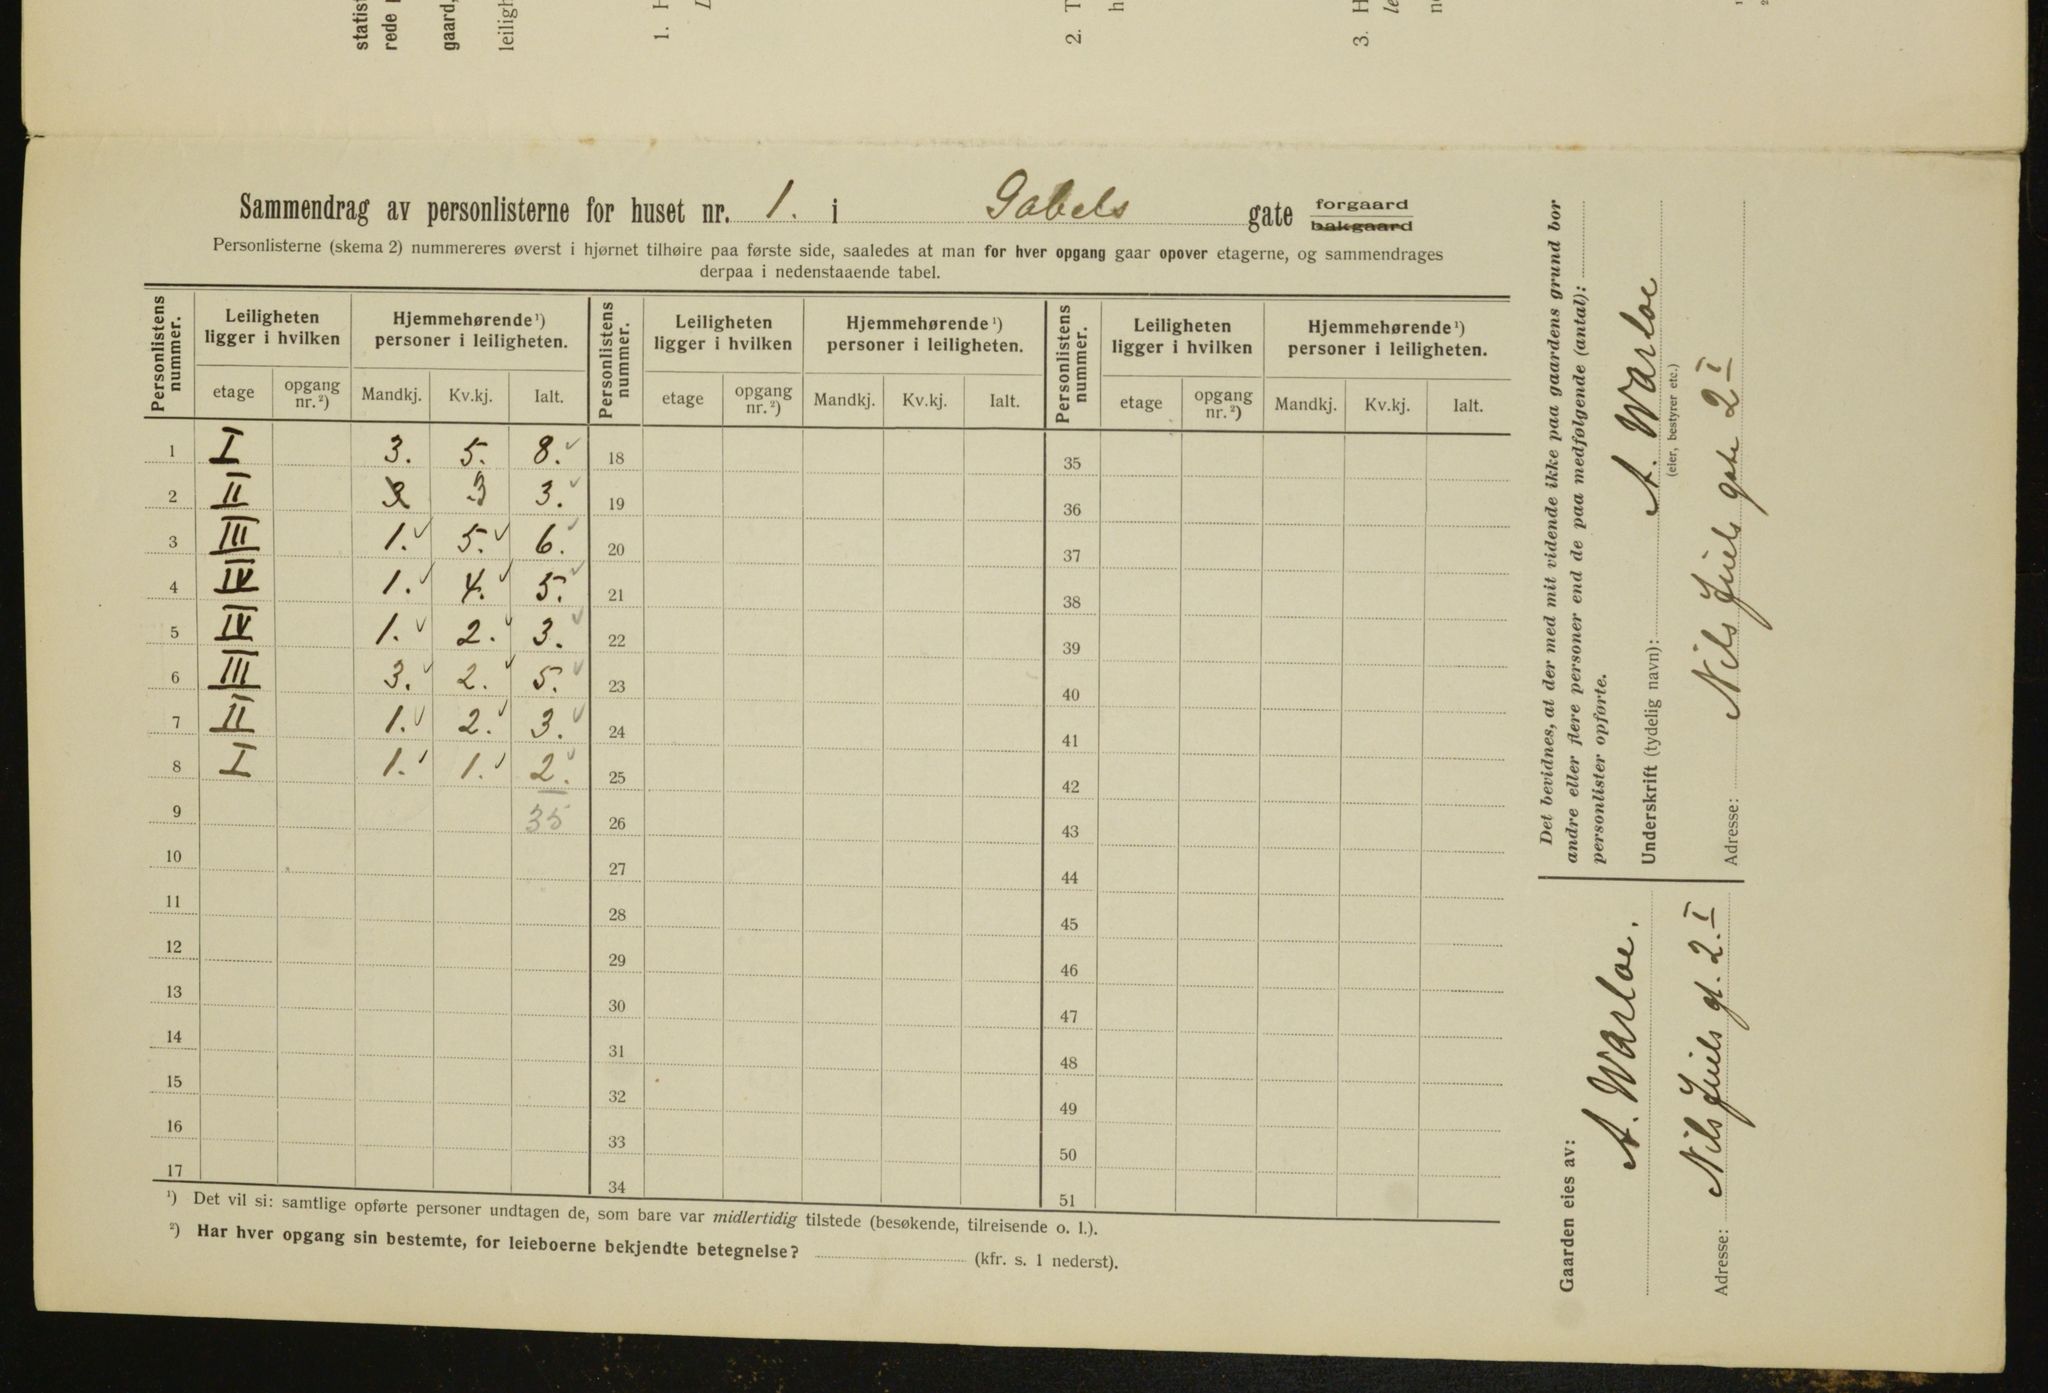 statist
rede
gaard,
leiligh
1. H
2. T
h
3. H
le
Sammendrag av personlisterne for huset nr. 1. i Gabels gate forgaard
bakgaard
Personlisterne (skema 2) nummereres øverst i hjørnet tilhøire paa første side, saaledes at man for hver opgang gaar opover etagerne, og sammendrages
derpaa i nedenstaaende tabel.
Personlistens nummer. Leiligheten ligger i hvilken Hjemmehørende ¹) personer i leiligheten. Personlistens nummer. Leiligheten ligger i hvilken Hjemmehørende ¹) personer i leiligheten. Personlistens nummer. Leiligheten ligger i hvilken Hjemmehørende ¹) personer i leiligheten.
etage opgang nr.²) Mandkj. Kv.kj. Ialt. etage opgang nr.²) Mandkj. Kv.kj. Ialt. etage opgang nr.²) Mandkj. Kv.kj. Ialt.
1 I 3. 5. 8. ✓ 18 35
2 II 3 3. ✓ 19 36
3 III 1. ✓ 5. ✓ 6. ✓ 20 37
4 IV 1. ✓ 4. ✓ 5. ✓ 21 38
5 IV 1. ✓ 2. ✓ 3. ✓ 22 39
6 III 3. ✓ 2. ✓ 5. ✓ 23 40
7 II 1. ✓ 2. ✓ 3. ✓ 24 41
8 I 1. ✓ 1. ✓ 2. ✓ 25 42
9 35 26 43
10 27 44
11 28 45
12 29 46
13 30 47
14 31 48
15 32 49
16 33 50
17 34 51
¹) Det vil si: samtlige opførte personer undtagen de, som bare var midlertidig tilstede (besøkende, tilreisende o. l.).
²) Har hver opgang sin bestemte, for leieboerne bekjendte betegnelse? (kfr. s. 1 nederst).
Det bevidnes, at der med mit vidende ikke paa gaardens grund bor
andre eller flere personer end de paa medfølgende (antal):
personlister opførte.
Underskrift (tydelig navn): A. Warloe
(eier, bestyrer etc.)
Adresse: Nils Juels gate 2 I
Gaarden eies av:
A. Warloe.
Adresse: Nils Juels gt. 2. I